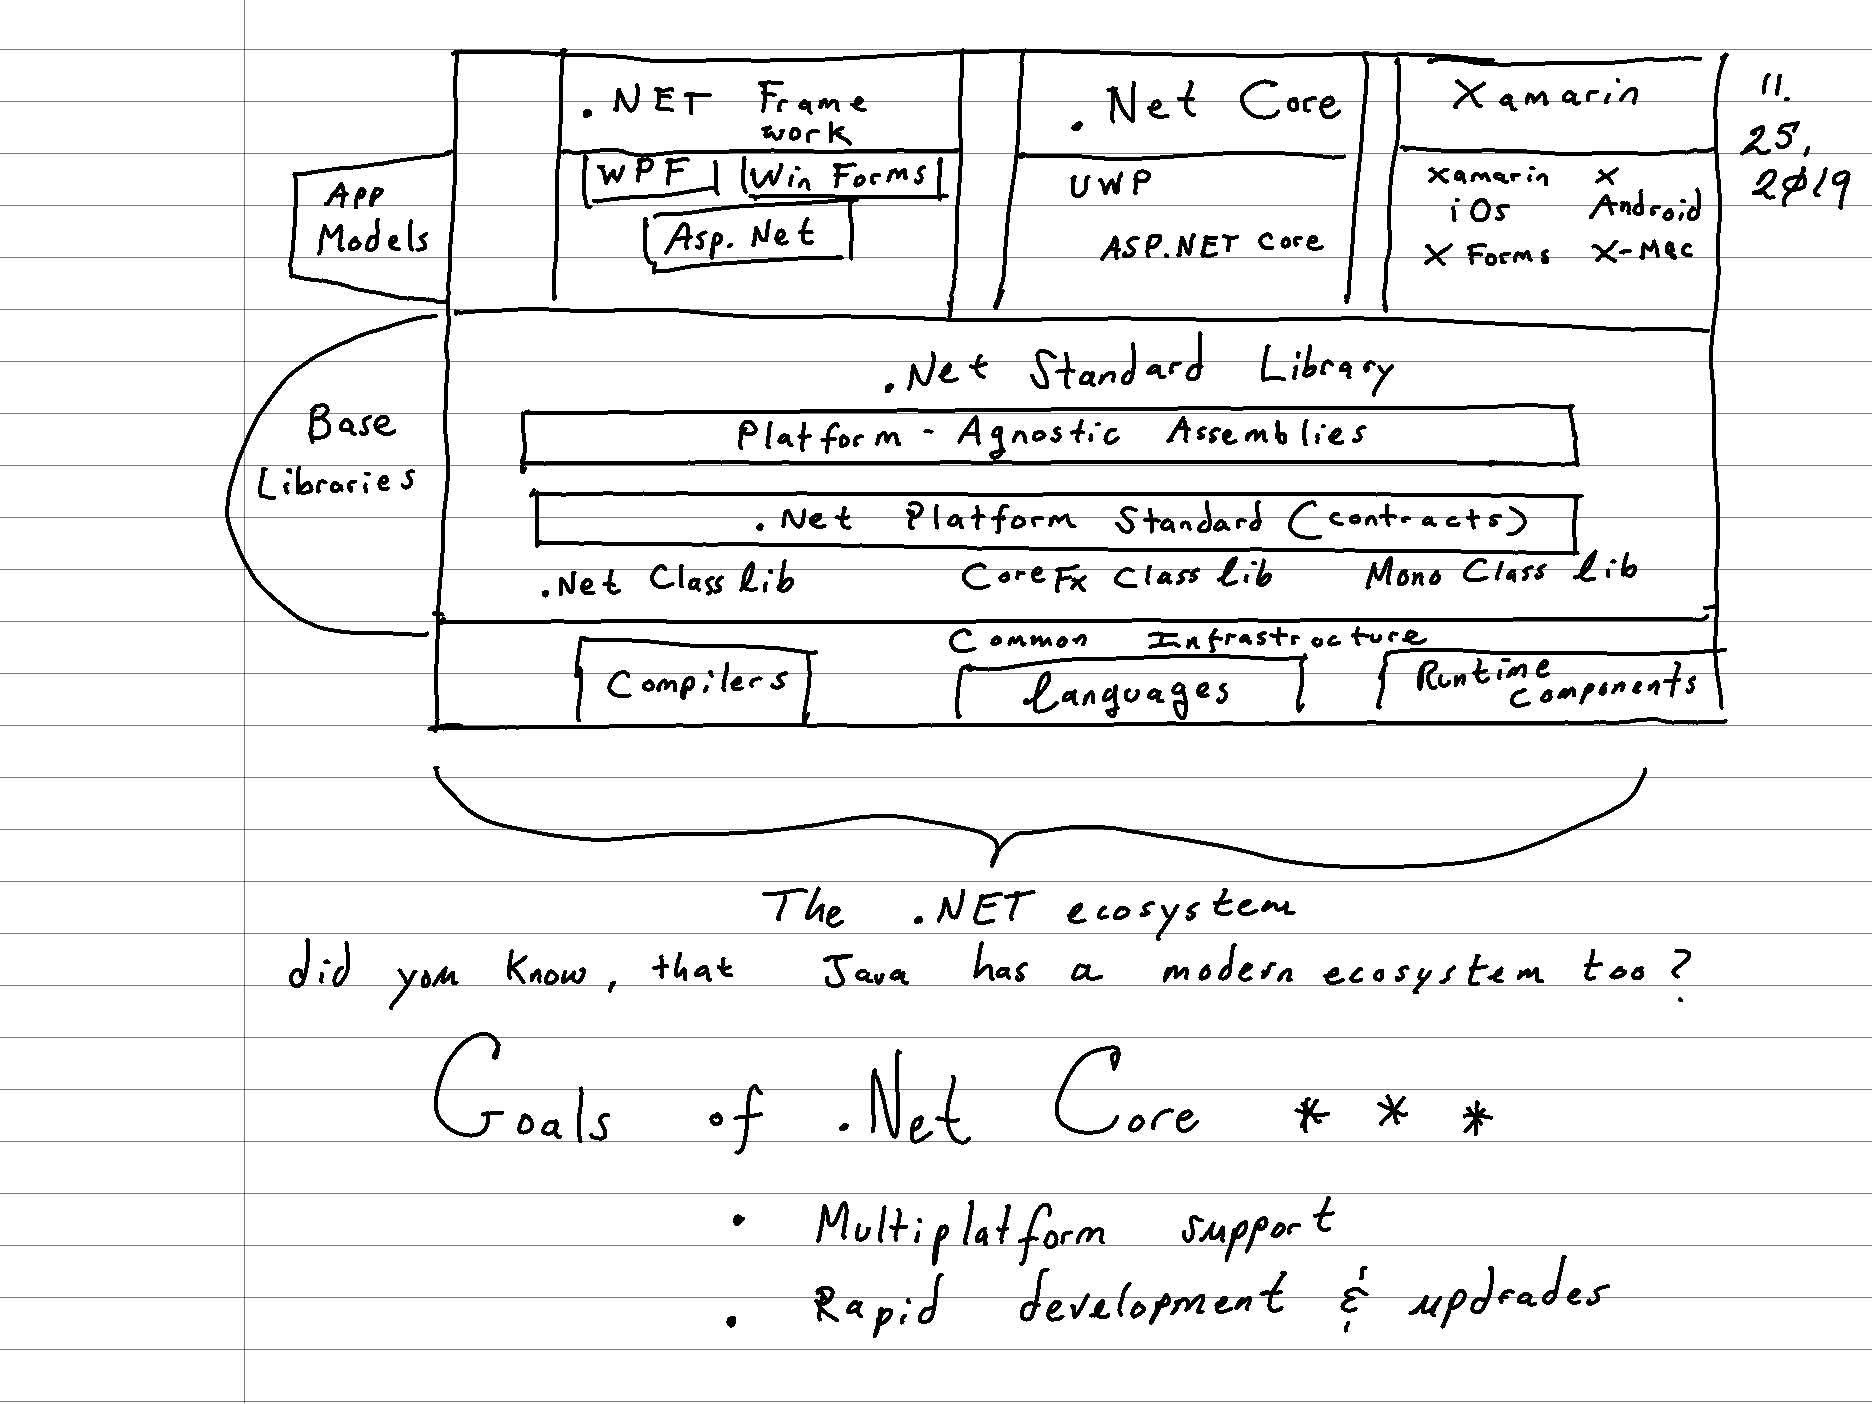 .NET Frame
work
.Net Core
Xamarin
11.
25,
2019
App
Models
WPF
Win Forms
Asp.Net
UWP
ASP.NET Core
Xamarin
iOs
X
Android
X Forms
X-Mac
Base
Libraries
.Net Standard Library
Platform - Agnostic Assemblies
.Net Platform Standard (contracts)
.Net Class lib
CoreFx Class lib
Mono Class lib
Common Infrastructure
Compilers
languages
Runtime
components
The .NET ecosystem
did you know, that Java has a modern ecosystem too?
Goals of .Net Core * * *
• Multiplatform support
• Rapid development & updrades